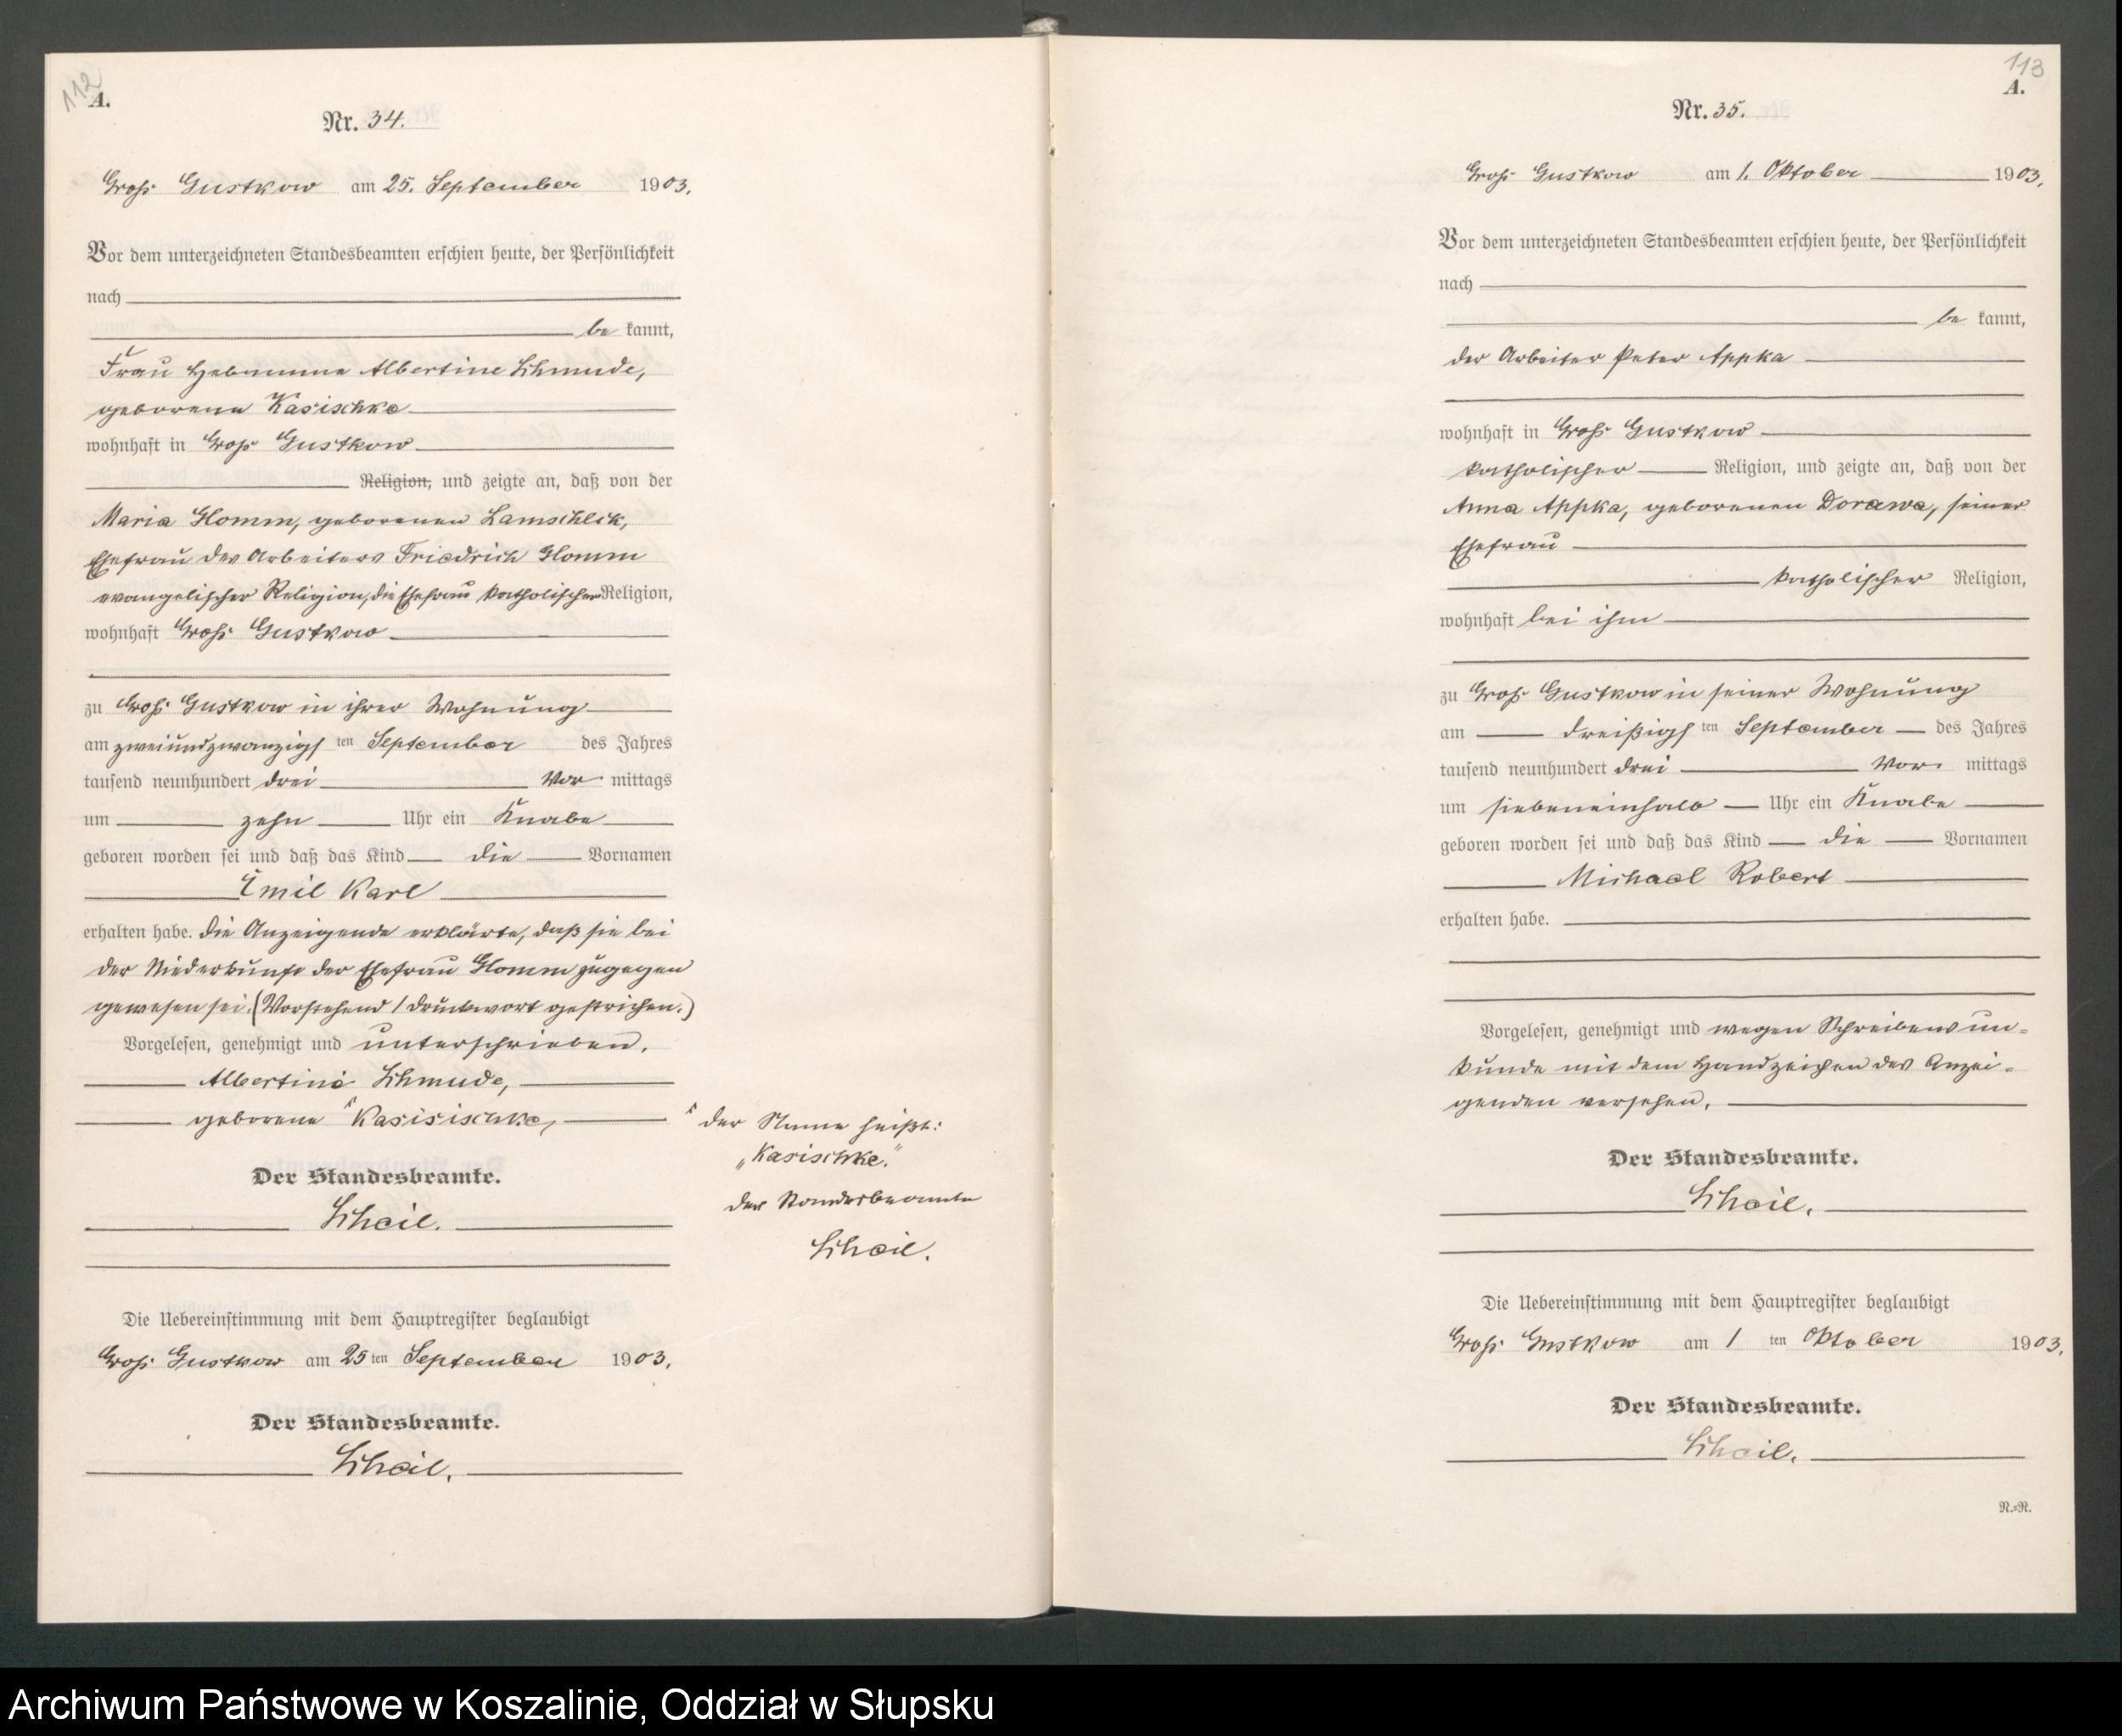 112
A.
Nr. 34.
Groß Gustkow am 25. September 1903.
Vor dem unterzeichneten Standesbeamten erschien heute, der Persönlichkeit
nach
be kannt,
Frau Hebamme Albertine Schmude,
geborene Kasischke
wohnhaft in Groß Gustkow
Religion, und zeigte an, daß von der
Maria Glomm, geborenen Lamschlik,
Ehefrau des Arbeiters Friedrich Glomm
evangelischer Religion, die Ehefrau katholischer Religion,
wohnhaft Groß Gustkow
zu Groß Gustkow in ihrer Wohnung
am zweiundzwanzigsten September des Jahres
tausend neunhundert drei Vor mittags
um zehn Uhr ein Knabe
geboren worden sei und daß das Kind die Vornamen
Emil Karl
erhalten habe. Die Anzeigende erklärte, daß sie bei
der Niederkunft der Ehefrau Glomm zugegen
gewesen sei. (Vorstehend 1 Druckwort gestrichen.)
Vorgelesen, genehmigt und unterschrieben.
Albertine Schmude,
geborene Kasisischke,
Der Standesbeamte.
Scheil.
Der Name heißt:
„Kasischke."
Der Standesbeamte
Scheil.
Die Uebereinstimmung mit dem Hauptregister beglaubigt
Groß Gustkow am 25 ten September 1903.
Der Standesbeamte.
Scheil.
113
A.
Nr. 35.
Groß Gustkow am 1. Oktober 1903.
Vor dem unterzeichneten Standesbeamten erschien heute, der Persönlichkeit
nach
be kannt,
der Arbeiter Peter Appka
wohnhaft in Groß Gustkow
katholischer Religion, und zeigte an, daß von der
Anna Appka, geborenen Dorawa, seiner
Ehefrau
katholischer Religion,
wohnhaft bei ihm
zu Groß Gustkow in seiner Wohnung
am dreißigsten September des Jahres
tausend neunhundert drei Vor mittags
um siebeneinhalb Uhr ein Knabe
geboren worden sei und daß das Kind die Vornamen
Michael Robert
erhalten habe.
Vorgelesen, genehmigt und wegen Schreibensun-
kunde mit dem Handzeichen des Anzei-
genden versehen.
Der Standesbeamte.
Scheil.
Die Uebereinstimmung mit dem Hauptregister beglaubigt
Groß Gustkow am 1 ten Oktober 1903.
Der Standesbeamte.
Scheil.
R.=R.
Archiwum Państwowe w Koszalinie, Oddział w Słupsku